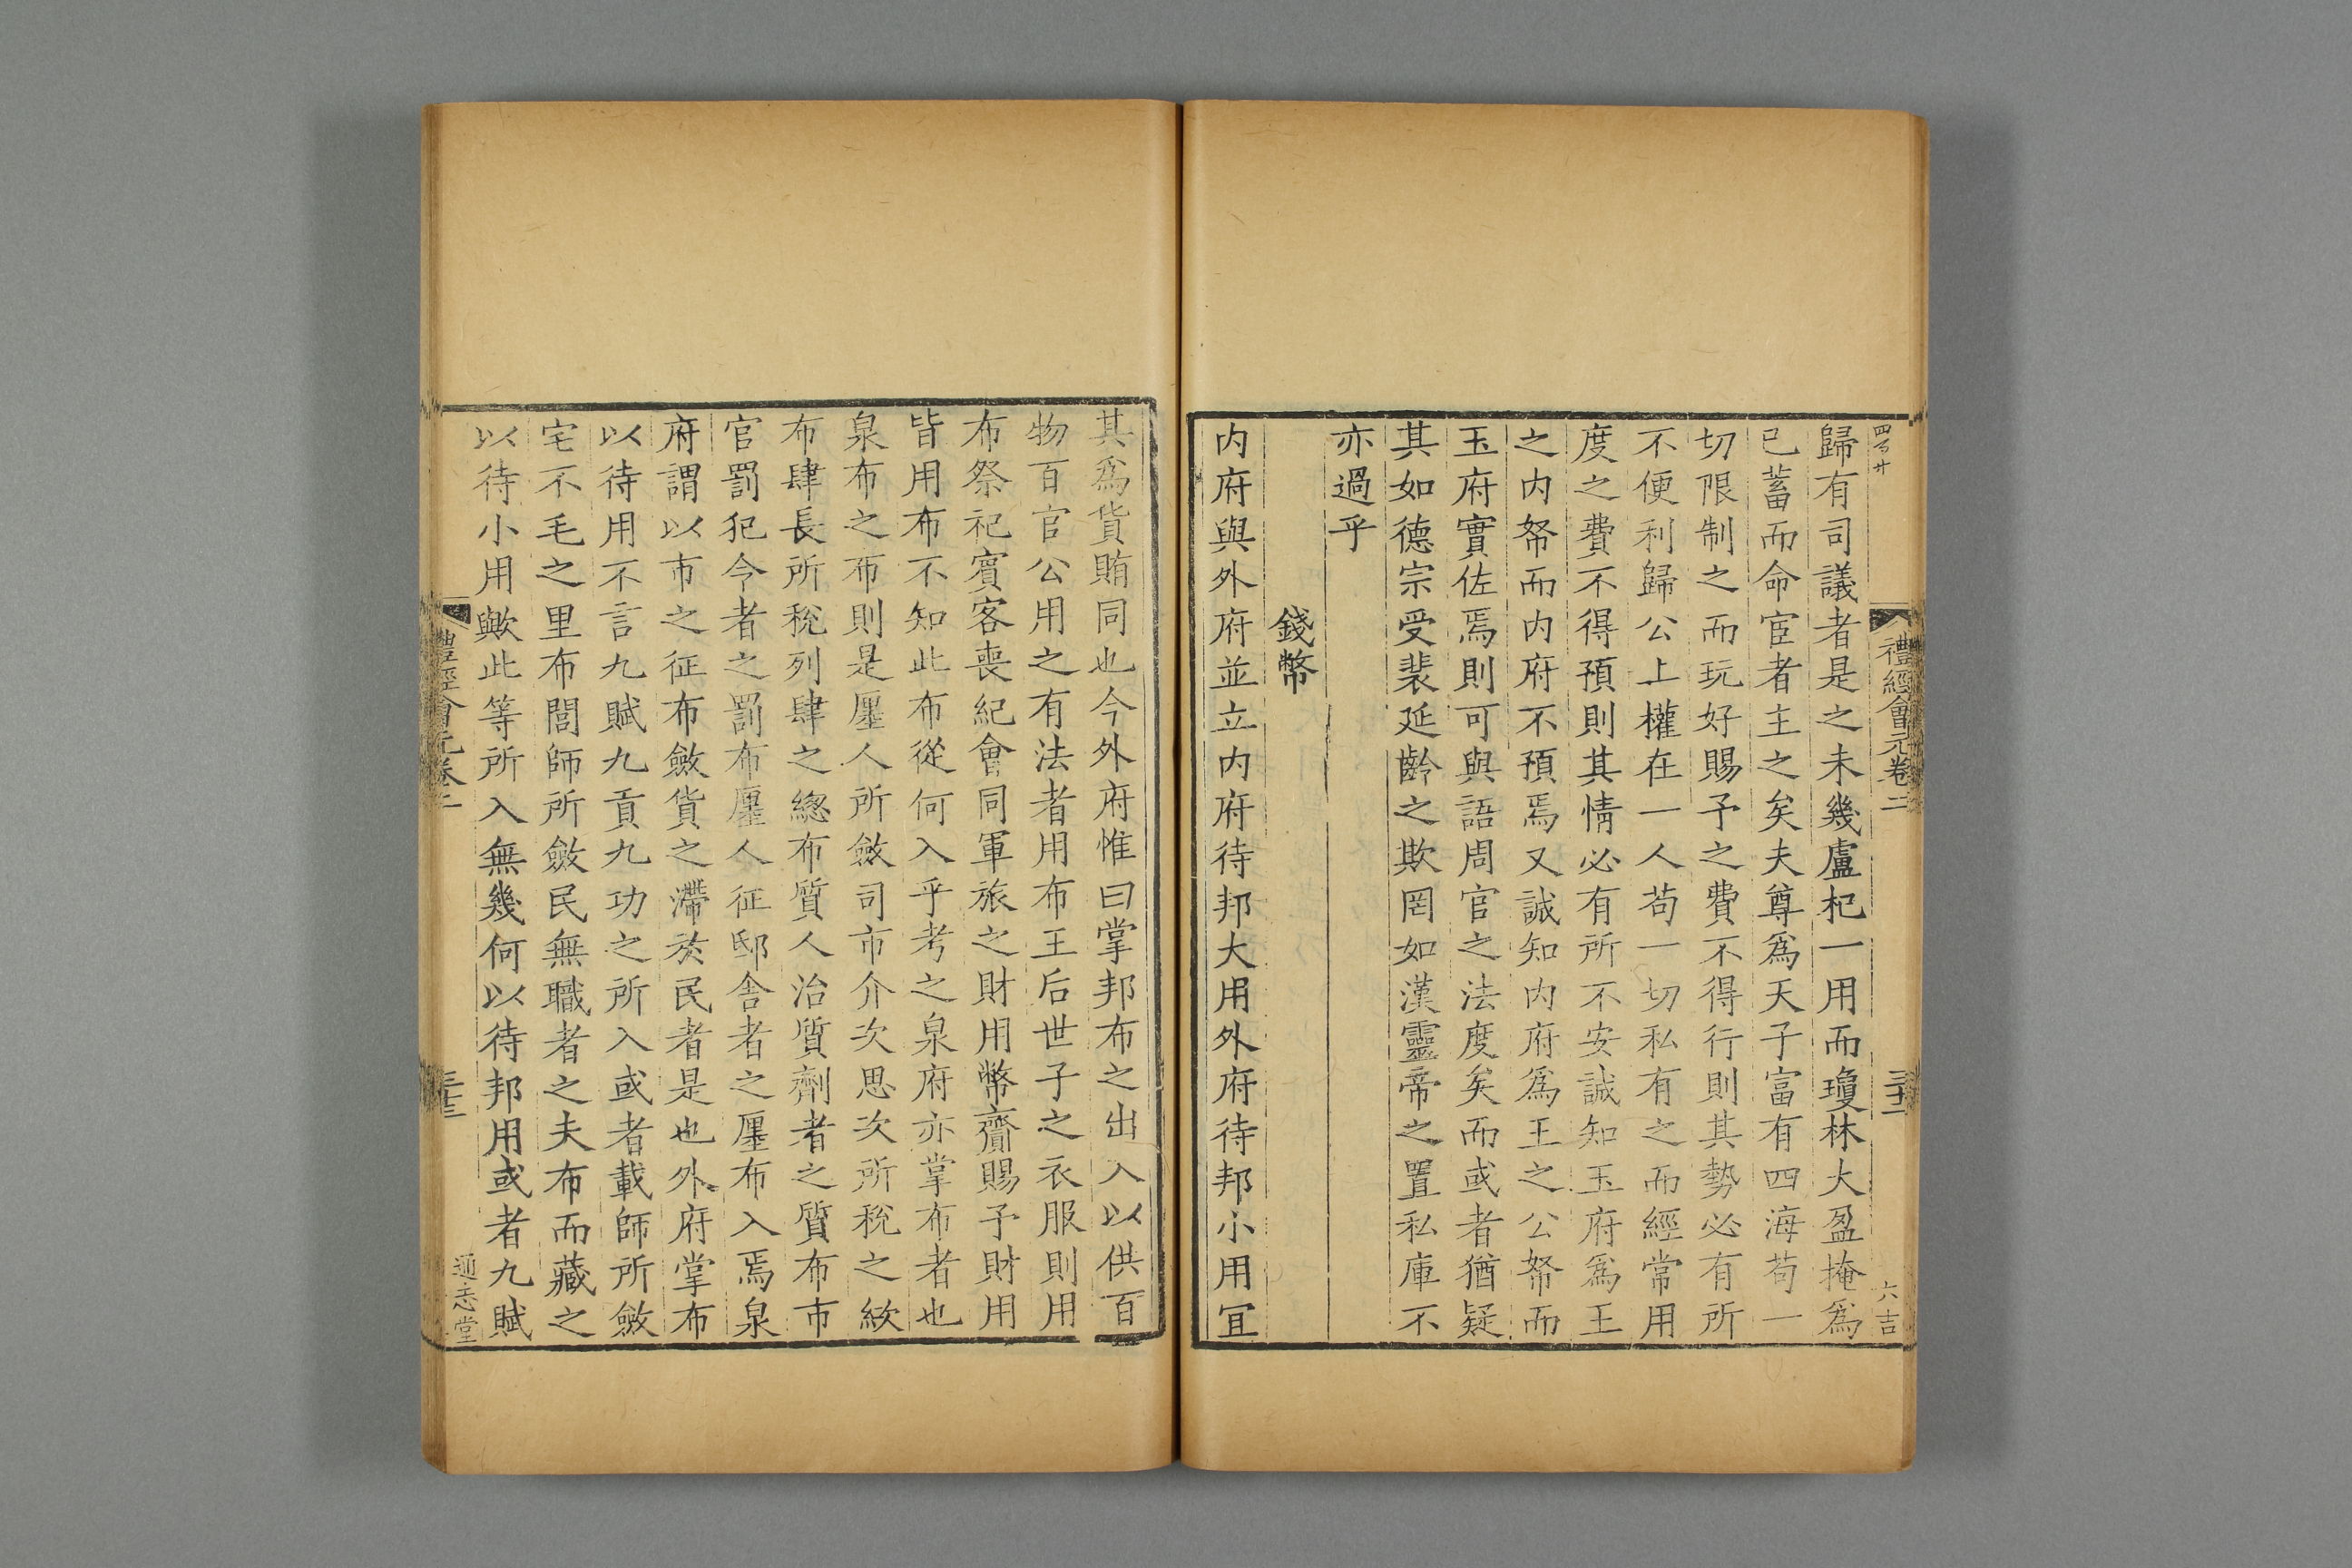 四百廿
禮經會元卷二
三十二
六吉
歸有司議者是之未幾盧杞一用而瓊林大盈掩爲
已蓄而命宦者主之矣夫尊爲天子富有四海苟一
切限制之而玩好賜予之費不得行則其勢必有所
不便利歸公上權在一人苟一切私有之而經常用
度之費不得預則其情必有所不安誠知玉府爲王
之内帑而内府不預焉又誠知内府爲王之公帑而
玉府實佐焉則可與語周官之法度矣而或者猶疑
其如德宗受裴延齡之欺罔如漢靈帝之置私庫不
亦過乎
錢幣
内府與外府並立内府待邦大用外府待邦小用冝
其爲貨賄同也今外府惟曰掌邦布之出入以供百
物百官公用之有法者用布王后世子之衣服則用
布祭祀賓客喪紀會同軍旅之財用幣齎賜予財用
皆用布不知此布從何入乎考之泉府亦掌布者也
泉布之布則是廛人所斂司市介次思次所稅之絘
布肆長所稅列肆之緫布質人治質劑者之質布市
官罰犯令者之罰布廛人征邸舎者之廛布入焉泉
府謂以市之征布斂貨之滯於民者是也外府掌布
以待用不言九賦九貢九功之所入或者載師所斂
宅不毛之里布閭師所斂民無職者之夫布而藏之
以待小用歟此等所入無幾何以待邦用或者九賦
禮經會元卷二
三十三
通志堂